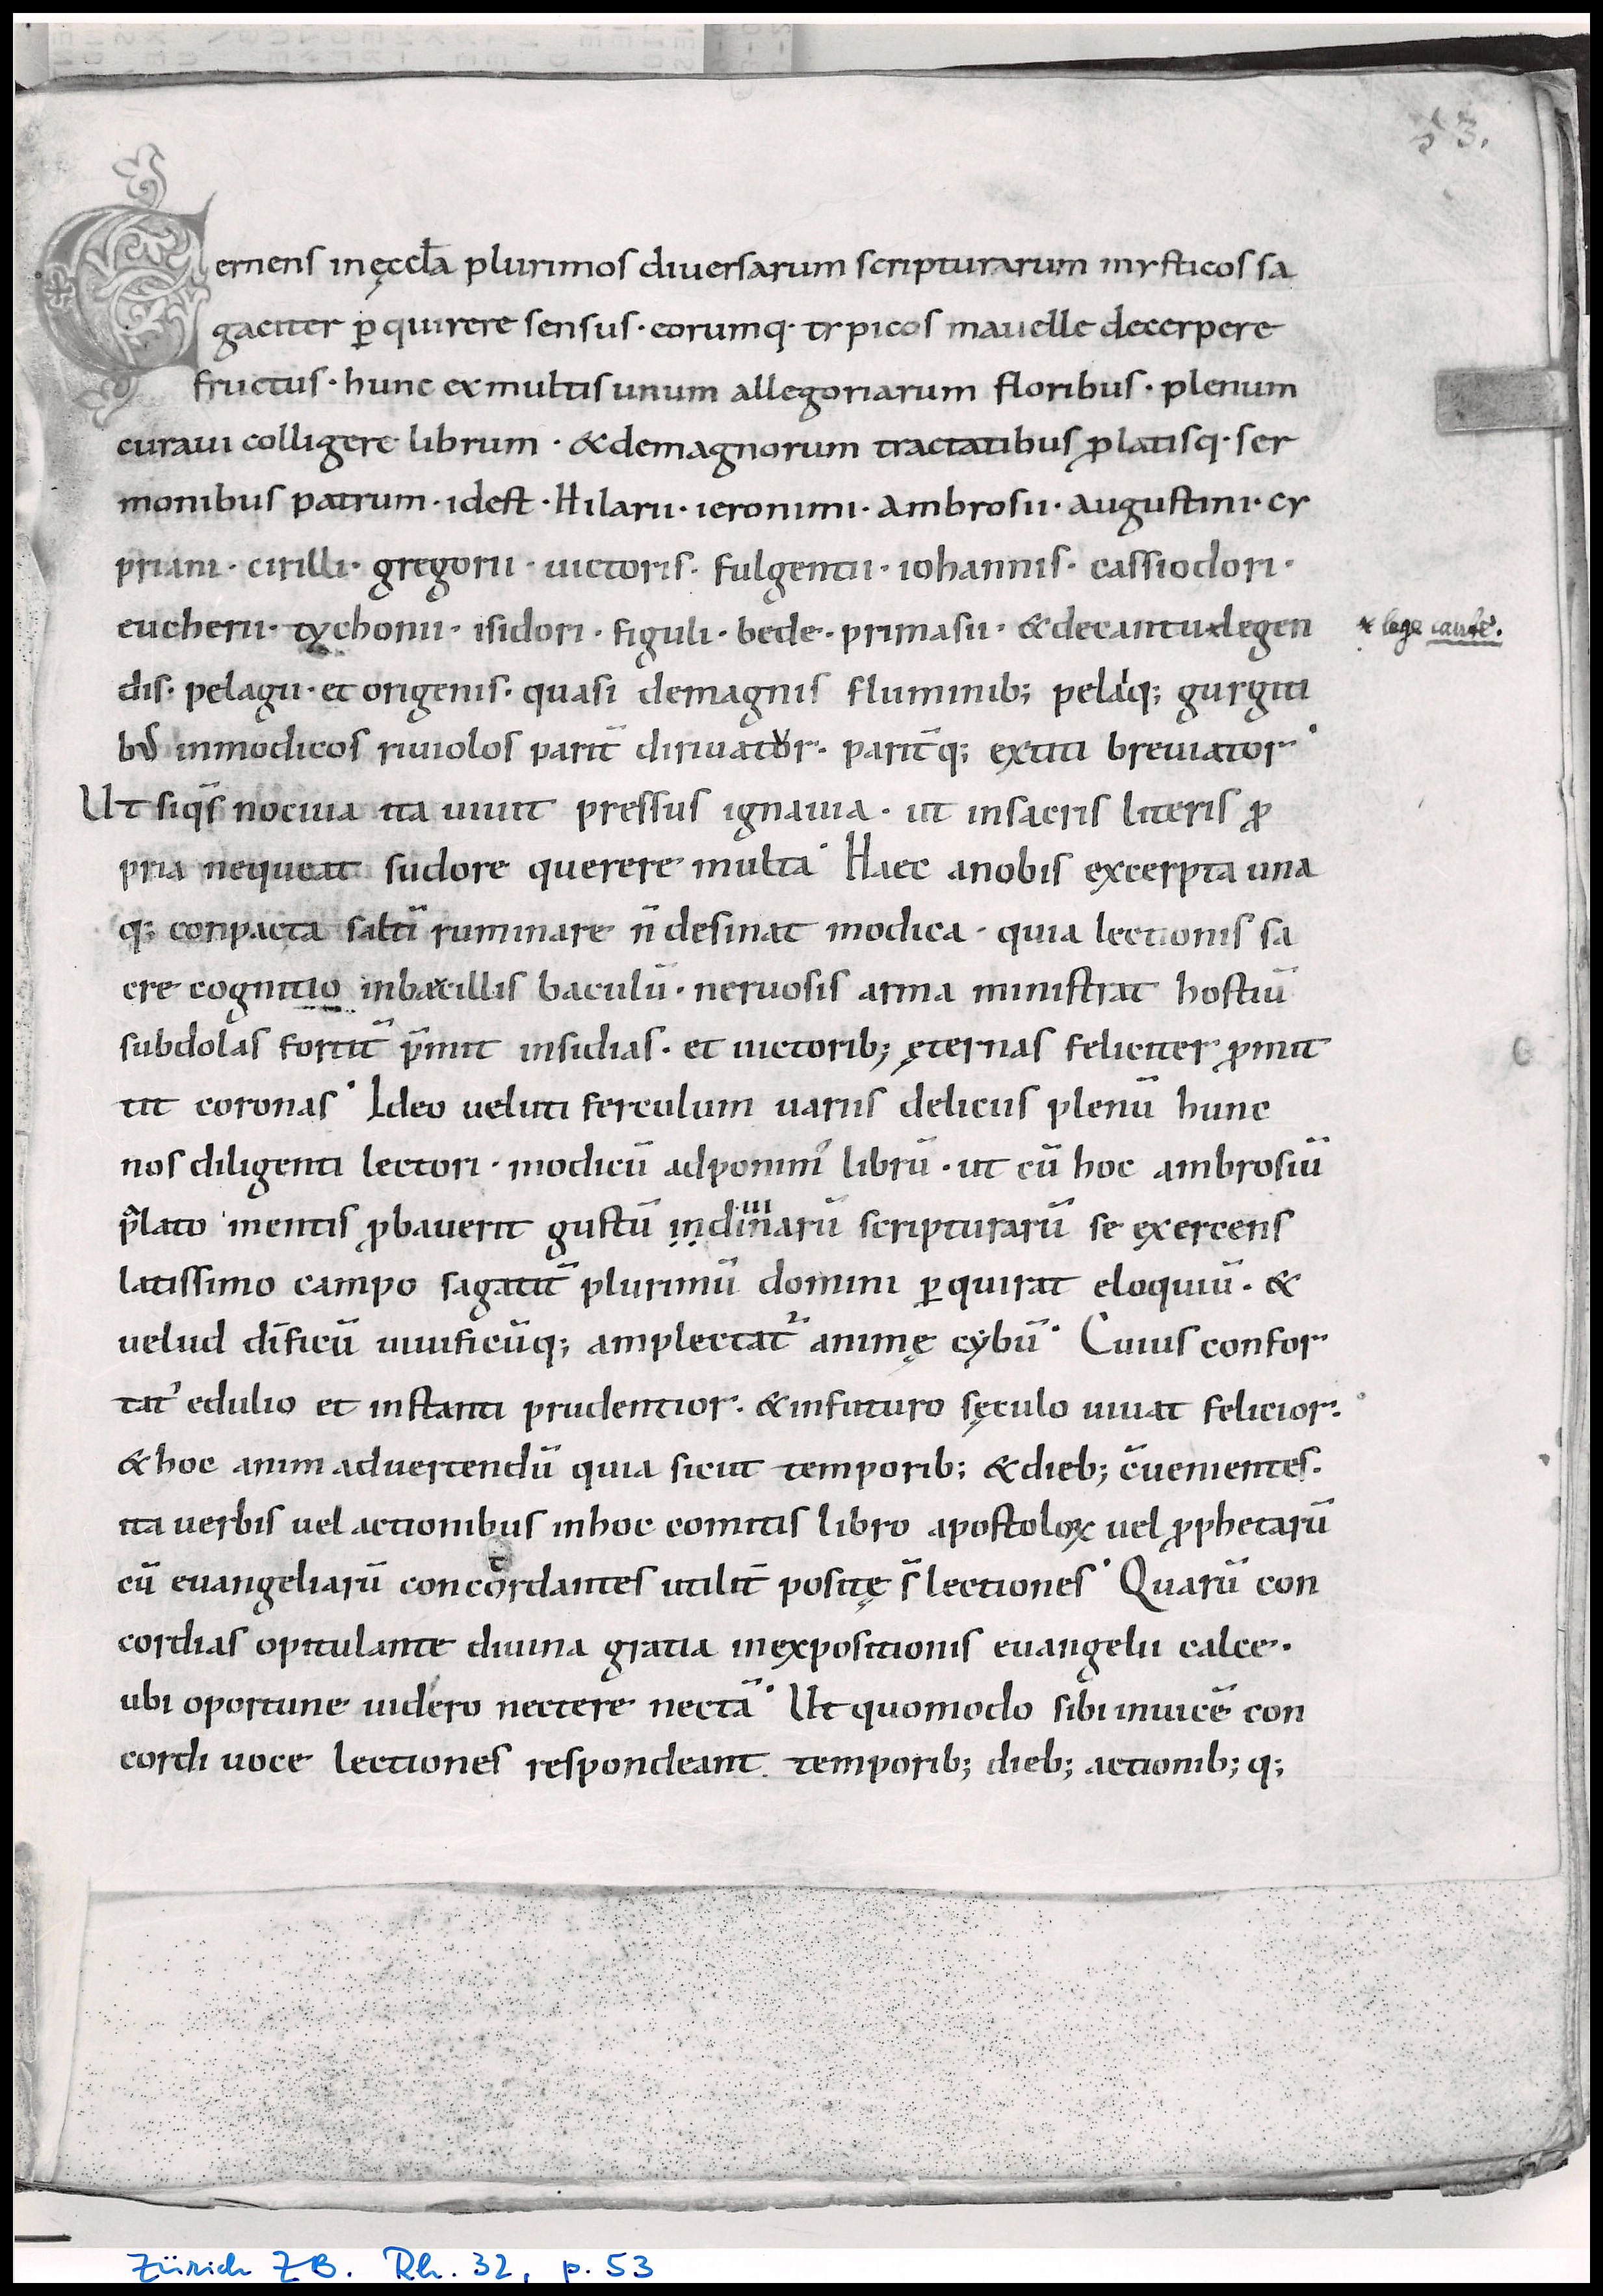 53.
Cernens in ęccła plurimos diuersarum scripturarum mysticos sa
gaciter ꝑquirere sensus · eorumq· typicos mauelle decerpere
fructus · hunc ex multis unum allegoriarum floribus · plenum
curaui colligere librum · & de magnorum tractatibus ꝓlatisq· ser
monibus patrum · id est · Hilarii · ieronimi · Ambrosii · Augustini · cy
priani · cirilli · gregorii · uictoris · fulgentii · iohannis · cassiodori ·
eucherii · tychonii · isidori · figuli · bede · primasii · & decantu legen
× lege caute.
dis · pelagii · et origenis · quasi de magnis fluminib; pelaiq; gurgiti
bus inmodicos riuiolos parit̄ diriuator · parit̄q; extiti breuiator·
Ut siqs̄ nociua ita uiuit pressus ignauia · ut in sacris literis ꝓ
pria nequeat sudore querere multa· Haec a nobis excerpta una
q; conpacta saltī ruminare n̄ desinat modica · quia lectionis sa
cre cognitio inbaxillis baculū · neruosis arma ministrat hostiū
subdolas fortit̄ p̄mit insidias · et uictorib; ęternas feliciter ꝓmit
tit coronas· Ideo ueluti ferculum uariis deliciis plenū hunc
nos diligenti lectori · modicū adponim' librū · ut cū hoc ambrosiū
p̄lato mentis ꝓbauerit gustū in diuinarū scripturarū se exercens
latissimo campo sagatit̄ plurimū domini ꝑquirat eloquiū · &
uelud dīficū uiuificūq; amplectat' animę cybū· Cuius confor
tat' edulio et instanti prudentior · & in futuro sęculo uiuat felicior ·
& hoc animaduertendū quia sicut temporib; & dieb; c̄uenientes ·
ita uerbis uel actionibus in hoc comitis libro apostoloꝝ uel ꝓphetarū
cū euangeliarū concordantes utilit̄ positę s̄ lectiones· Quarū con
cordias opitulante diuina gratia in expositionis euangelii calce ·
ubi oportune uidero nectere nectā· Ut quomodo sibi inuicē con
cordi uoce lectiones respondeant temporib; dieb; actionib; q;
Zürich ZB. Rh. 32, p. 53